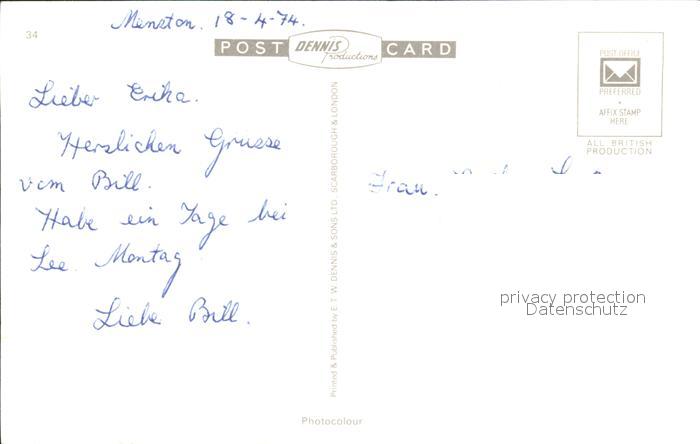 Menston. 18-4-74.
34
POST DENNIS Productions CARD
POST OFFICE
PREFERRED
AFFIX STAMP
HERE
ALL BRITISH
PRODUCTION
Lieber Erika.
Herslichen Grusse
vom Bill.
Habe ein Tage bei
Lee. Montag
Liebe Bill.
Printed & Published by E. T. W. DENNIS & SONS LTD. SCARBOROUGH & LONDON
Frau.
privacy protection
Datenschutz
Photocolour